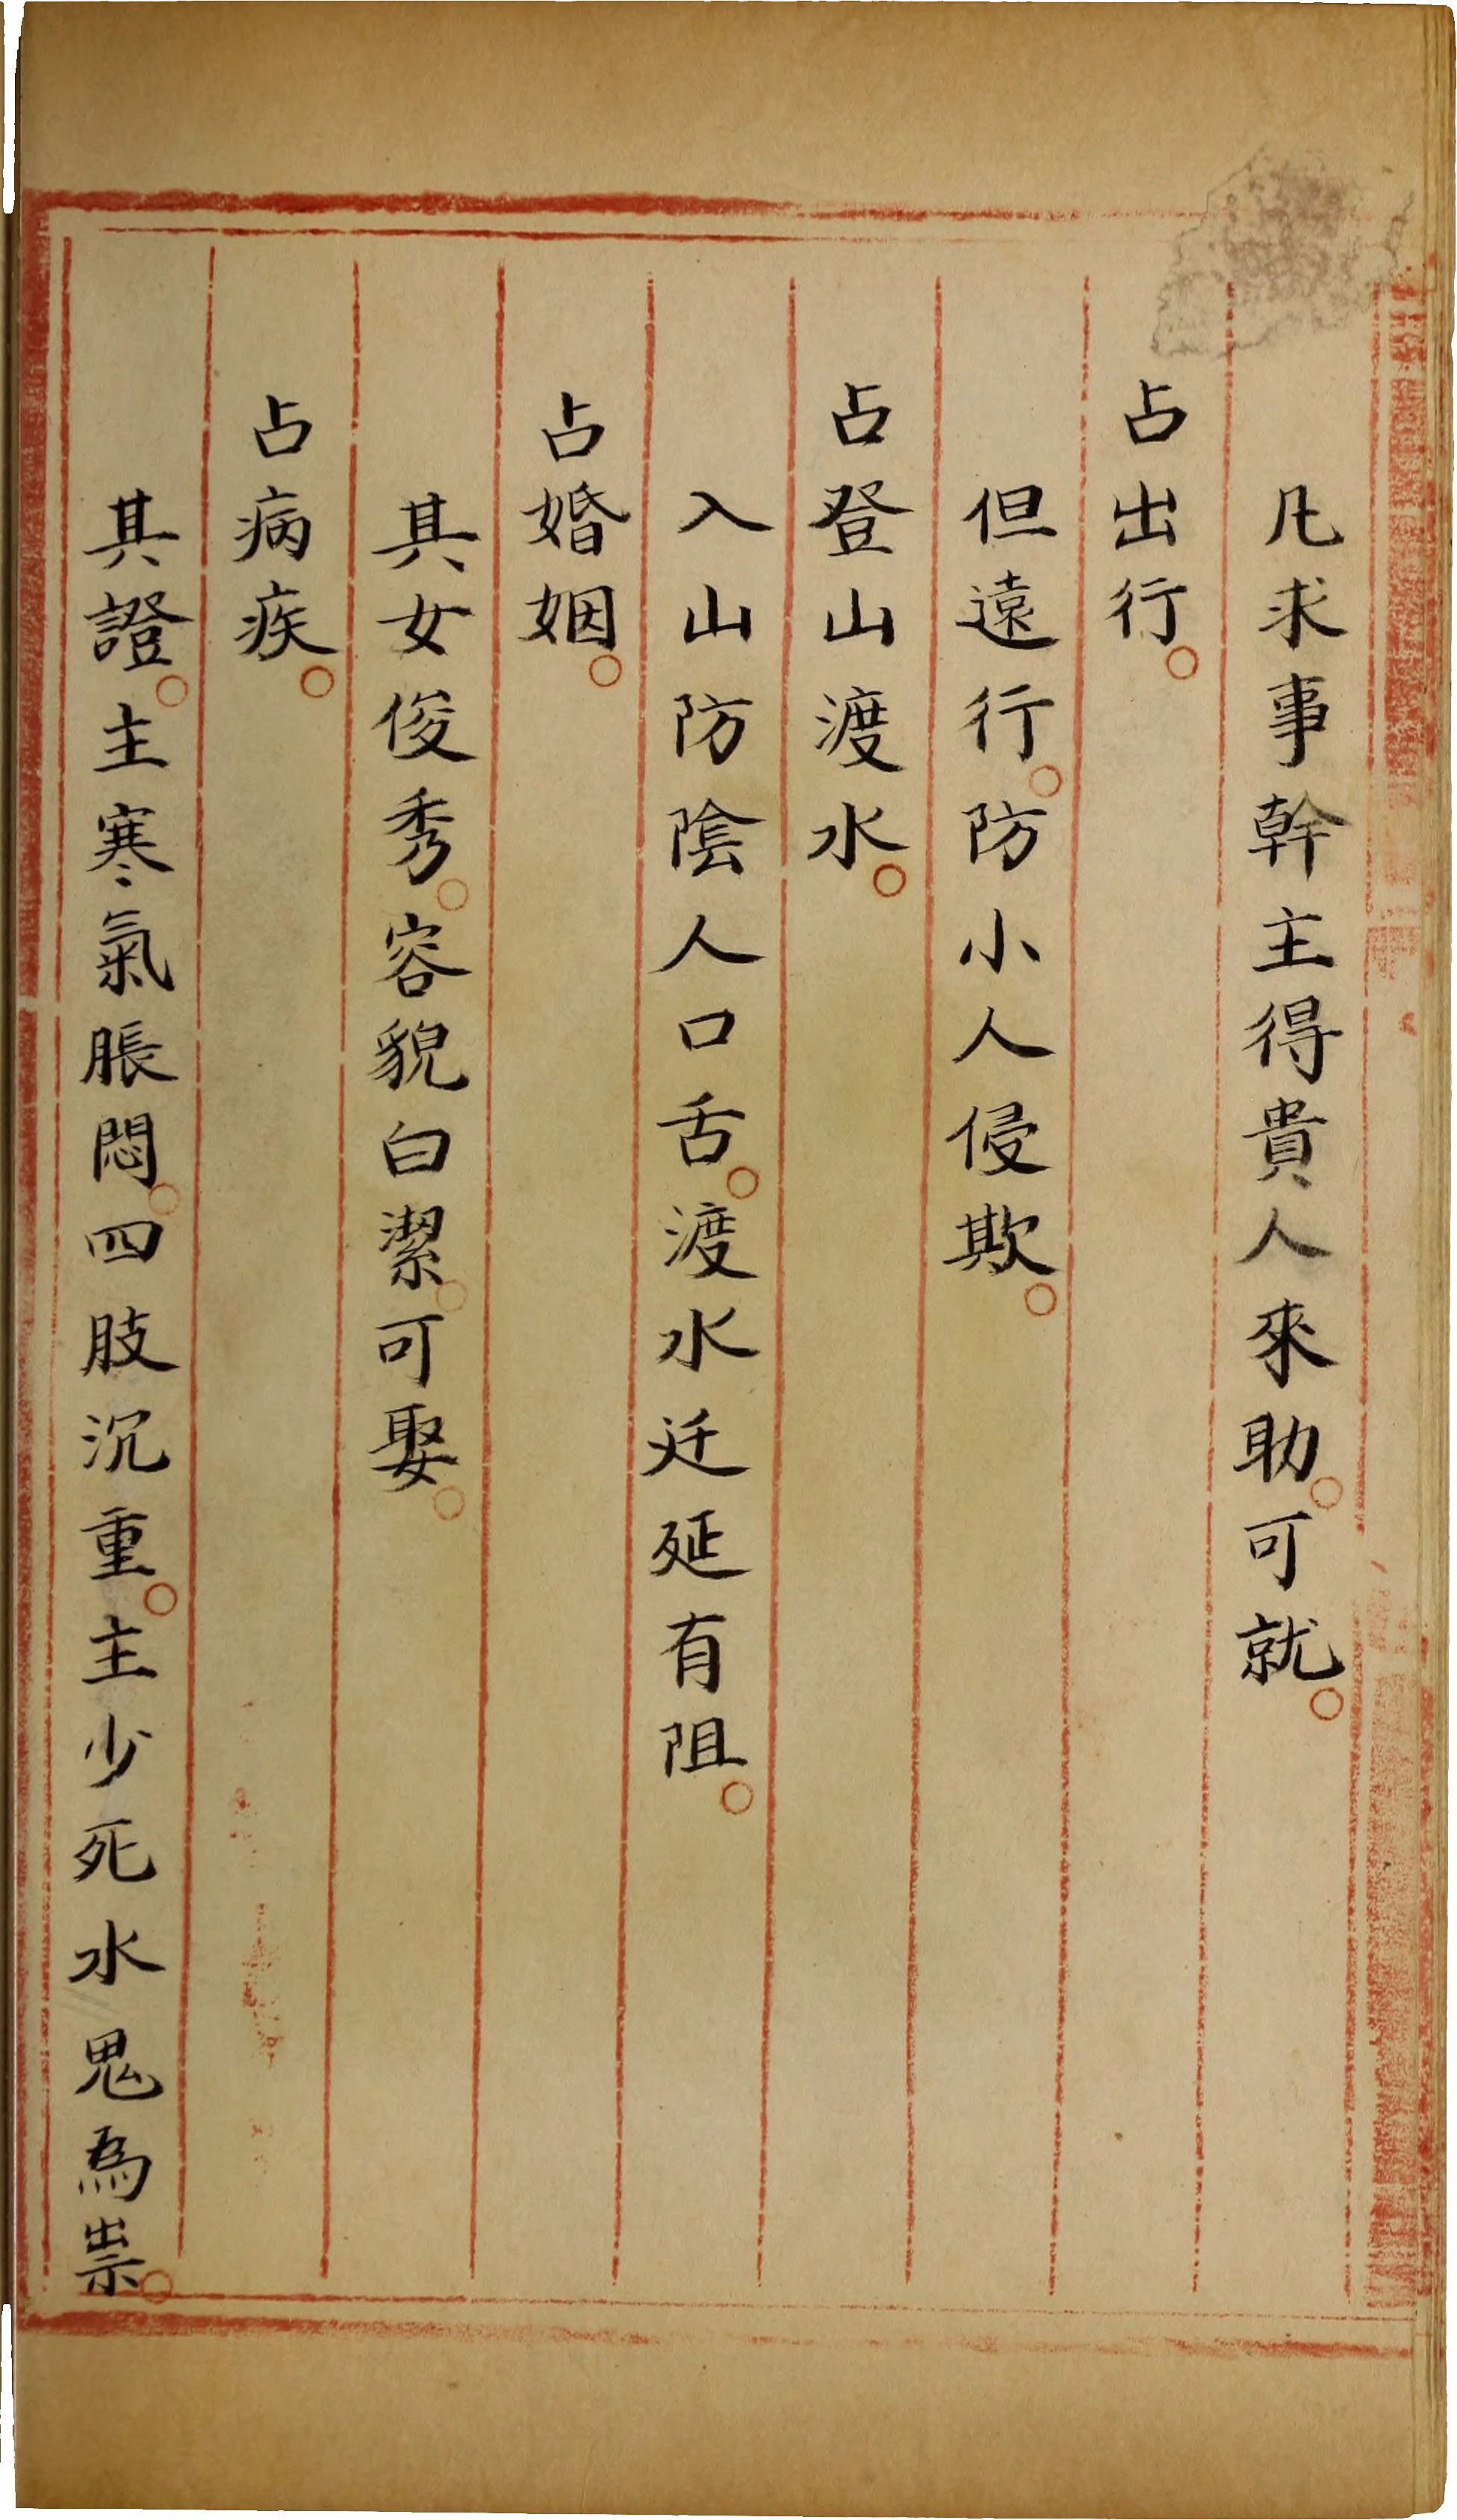 凡求事幹主得貴人來助。可就。
占出行。
但遠行。防小人侵欺。
占登山渡水。
入山防陰人口舌。渡水迁延有阻。
占婚姻。
其女俊秀。容貌白潔。可娶。
占病疾。
其證。主寒氣脹悶。四肢沉重。主少死水鬼為祟。